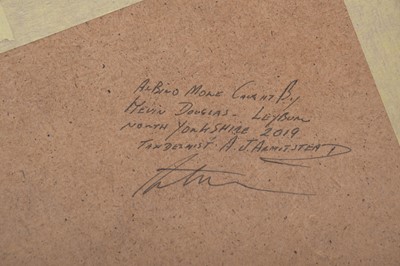 ALBINO MOLE CAUGHT BY
KELVIN DOUGLAS - LEYBURN
NORTH YORKSHIRE 2019
TAXIDERMIST. A. J. ARMITSTEAD